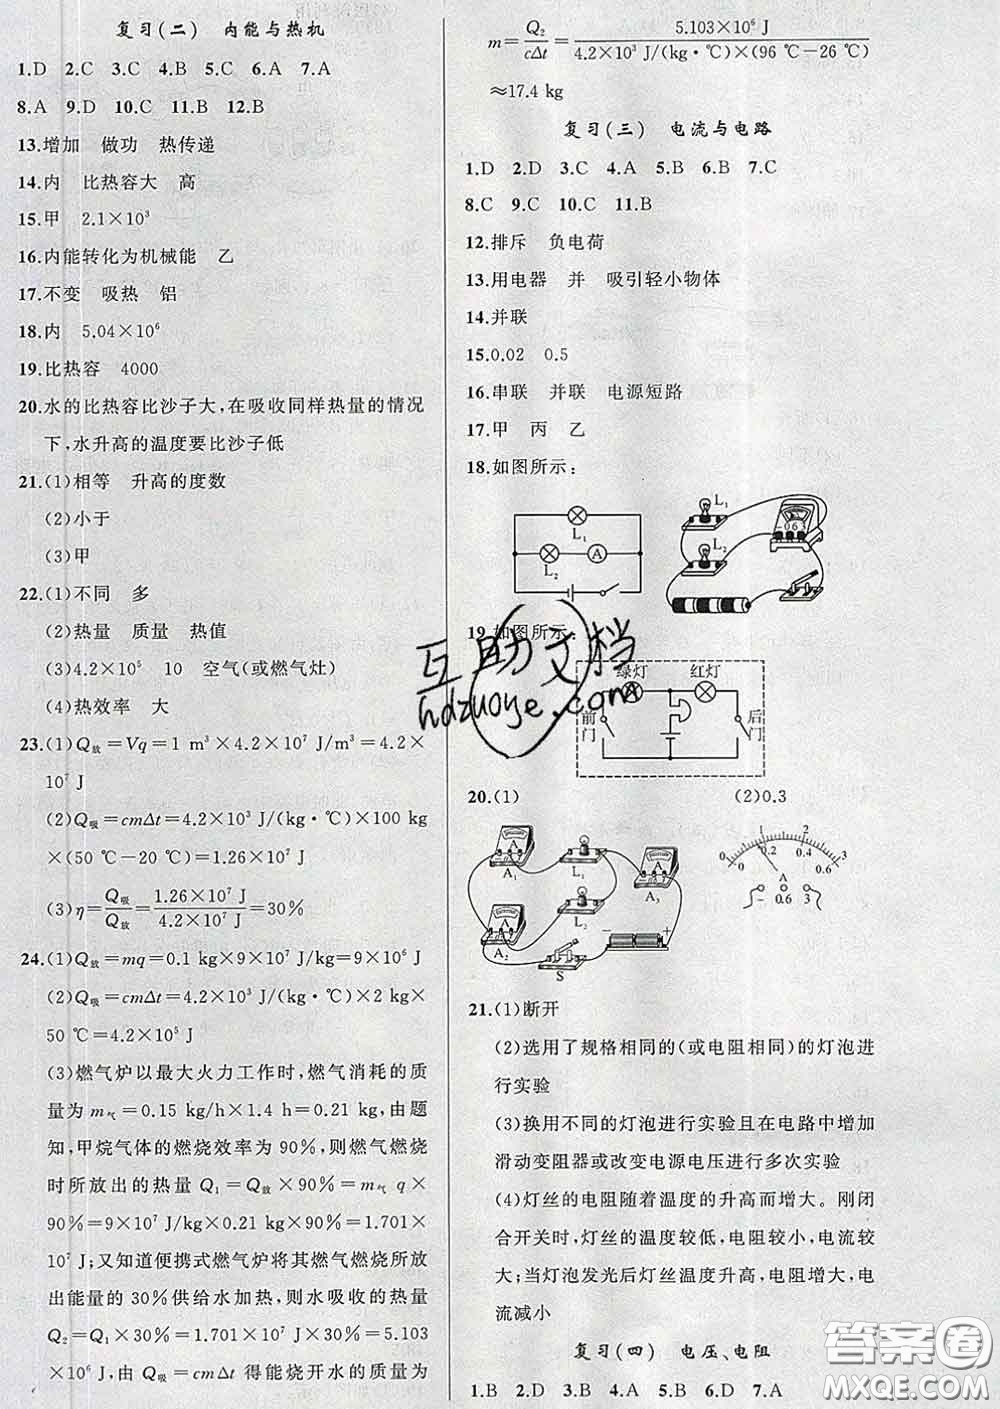 复习(二) 内能与热机
1.D 2.C 3.C 4.B 5.C 6.A 7.A
8.A 9.D 10.C 11.B 12.B
13.增加 做功 热传递
14.内 比热容大 高
15.甲 2.1×10³
16.内能转化为机械能 乙
17.不变 吸热 铝
18.内 5.04×10⁶
19.比热容 4000
20.水的比热容比沙子大,在吸收同样热量的情况
下,水升高的温度要比沙子低
21.(1)相等 升高的度数
(2)小于
(3)甲
22.(1)不同 多
(2)热量 质量 热值
(3)4.2×10⁵ 10 空气(或燃气灶)
(4)热效率 大
23.(1)Q放=Vq=1 m³×4.2×10⁷ J/m³=4.2×
10⁷ J
(2)Q吸=cmΔt=4.2×10³ J/(kg·℃)×100 kg
×(50 ℃-20 ℃)=1.26×10⁷ J
(3)η=Q吸/Q放=1.26×10⁷ J/4.2×10⁷ J=30%
24.(1)Q放=mq=0.1 kg×9×10⁷ J/kg=9×10⁶ J
(2)Q吸=cmΔt=4.2×10³ J/(kg·℃)×2 kg×
50 ℃=4.2×10⁵ J
(3)燃气炉以最大火力工作时,燃气消耗的质
量为m气=0.15 kg/h×1.4 h=0.21 kg,由题
知,甲烷气体的燃烧效率为90%,则燃气燃烧
时所放出的热量Q₁=Q放×90%=m气 q×
90%=9×10⁷ J/kg×0.21 kg×90%=1.701×
10⁷ J;又知道便携式燃气炉将其燃气燃烧所放
出能量的30%供给水加热,则水吸收的热量
Q₂=Q₁×30%=1.701×10⁷ J×30%=5.103
×10⁶ J,由Q吸=cmΔt得能烧开水的质量为
m=Q₂/cΔt=5.103×10⁶ J/4.2×10³ J/(kg·℃)×(96 ℃-26 ℃)
≈17.4 kg
复习(三) 电流与电路
1.D 2.D 3.C 4.A 5.B 6.B 7.C
8.C 9.C 10.C 11.B
12.排斥 负电荷
13.用电器 并 吸引轻小物体
14.并联
15.0.02 0.5
16.串联 并联 电源短路
17.甲 丙 乙
18.如图所示:
L₁
L₂
A
L₁
L₂
-0.6 3
19.如图所示:
绿灯 红灯
前门 后门
20.(1) (2)0.3
A
A₁
L₁
A
A₃
A
A₂
L₂
S
- +
0 1 2 3
0 0.2 0.4 0.6
A
- 0.6 3
21.(1)断开
(2)选用了规格相同的(或电阻相同)的灯泡进
行实验
(3)换用不同的灯泡进行实验且在电路中增加
滑动变阻器或改变电源电压进行多次实验
(4)灯丝的电阻随着温度的升高而增大。刚闭
合开关时,灯丝的温度较低,电阻较小,电流较
大;当灯泡发光后灯丝温度升高,电阻增大,电
流减小
复习(四) 电压、电阻
1.B 2.D 3.C 4.A 5.B 6.D 7.A
互助文档
hdzuoye.com
答案圈
MXQE.COM